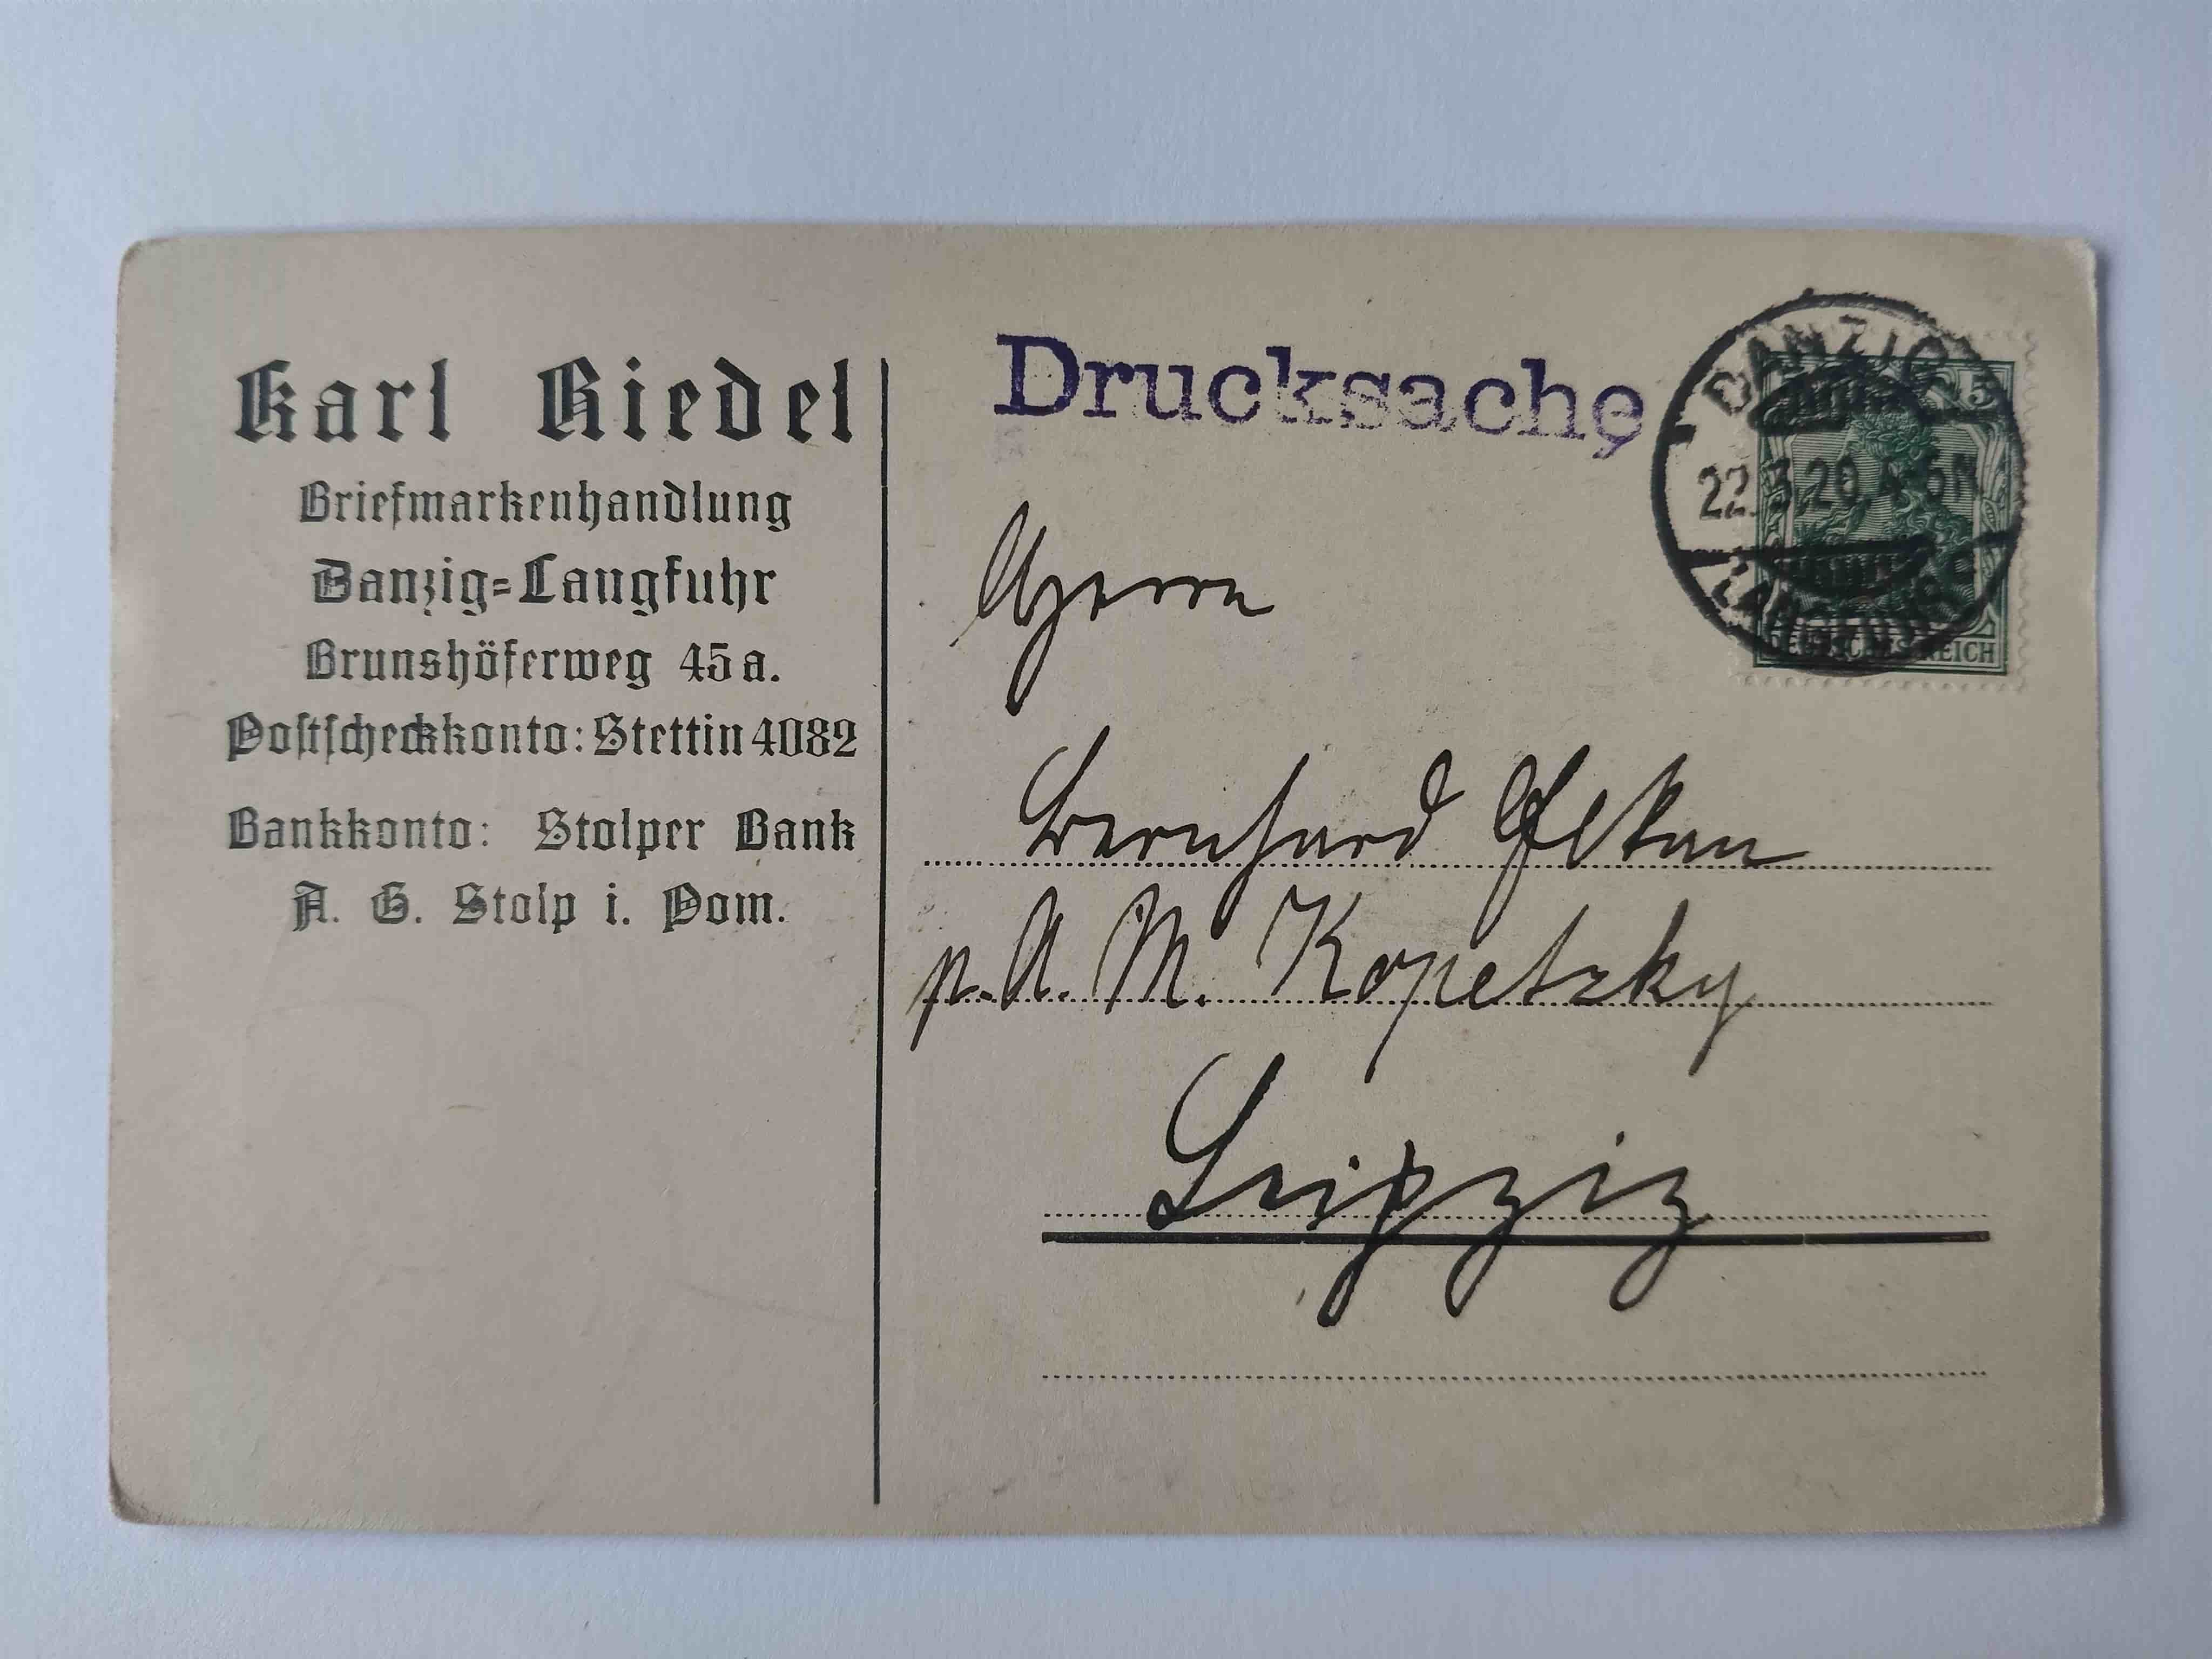 Karl Riedel
Briefmarkenhandlung
Danzig=Langfuhr
Brunshöferweg 45a.
Poſtſcheckkonto: Stettin 4082
Bankkonto: Stolper Bank
A. G. Stolp i. Pom.
Drucksache
DANZIG
5
22.3.20.
LANGFUHR
DEUTSCHES REICH
Herrn
Bernhard
p. A. M. Kopetzky
Leipzig